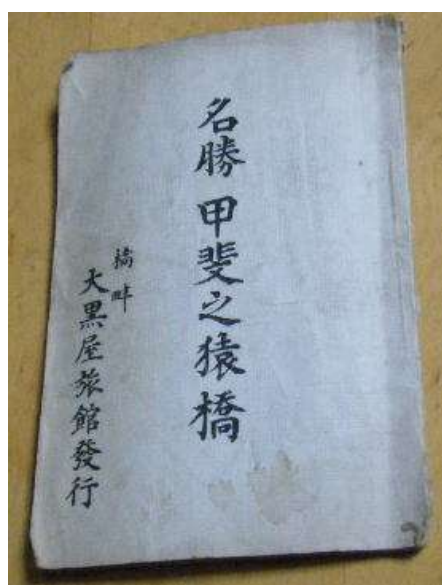 名勝 甲斐之猿橋
橋畔
大黒屋旅館發行